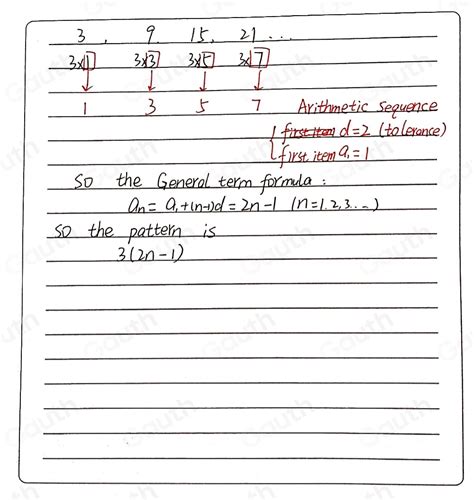 3, 9 15, 21 ...
3×1 3×3 3×5 3×7
1 3 5 7 Arithmetic sequence
first item d=2 (tolerance)
first item a₁=1
so the General term formula:
aₙ = a₁+(n-1)d = 2n-1 (n=1,2,3...)
so the pattern is
3(2n-1)